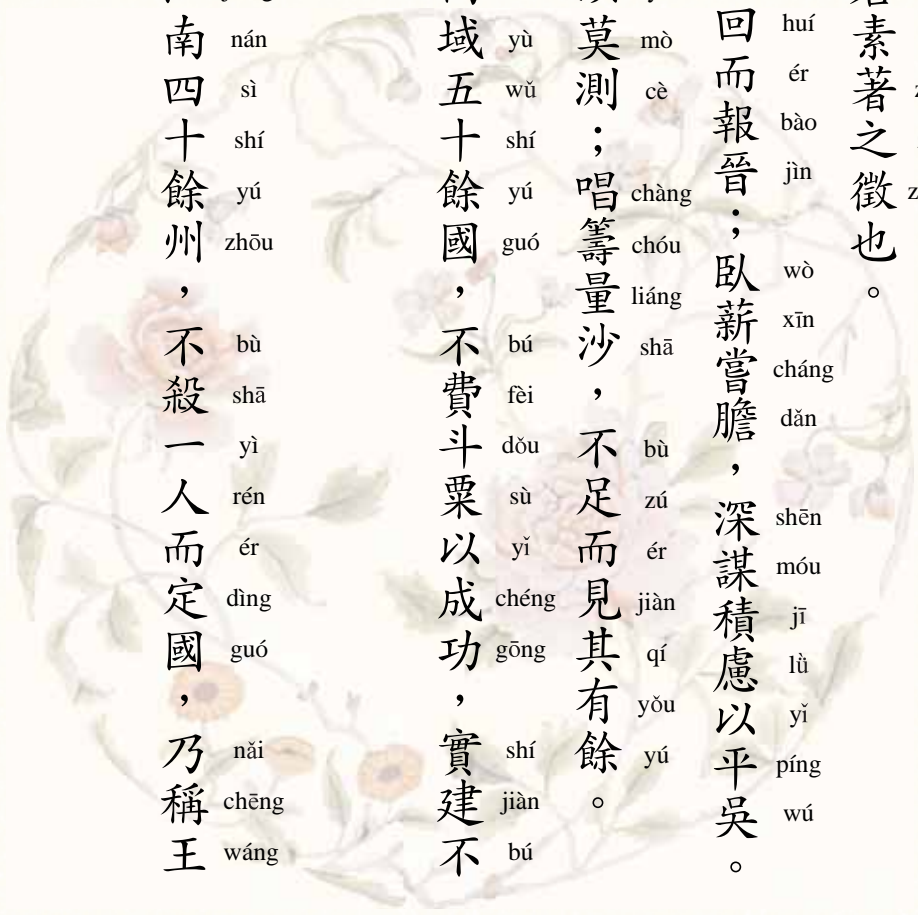 素著之徵也。
回而報晉;臥薪嘗膽,深謀積慮以平吳。
huí ér bào jìn wò xīn cháng dǎn shēn móu jī lǜ yǐ píng wú
莫測;唱籌量沙,不足而見其有餘。
mò cè chàng chóu liáng shā bù zú ér jiàn qí yǒu yú
域五十餘國,不費斗粟以成功,實建不
yù wǔ shí yú guó bú fèi dǒu sù yǐ chéng gōng shí jiàn bú
南四十餘州,不殺一人而定國,乃稱王
nán sì shí yú zhōu bù shā yì rén ér dìng guó nǎi chēng wáng